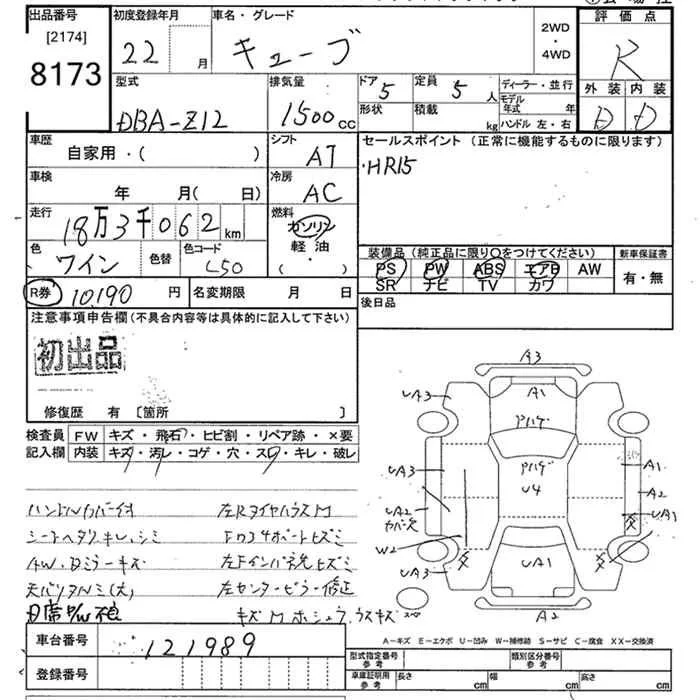 出品番号
[2174]
8173
初度登録年月
22 月
車名・グレード
キューブ
2WD
・
4WD
評価点
R
外装 内装
D D
型式
DBA-Z12
排気量
1500 CC
ドア 5
定員 5 人
形状
積載 kg
ディーラー・並行
モデル年式 年
ハンドル 左・右
車歴
自家用・( )
シフト
AT
セールスポイント (正常に機能するものに限ります)
・HR15
車検
年 月( 日)
冷房
AC
走行
18万3千062km
燃料
ガソリン
軽油
( ・ )
色
ワイン
色替
色コード
L50
装備品 (純正品に限り○をつけてください)
PS PW ABS エアB AW
SR ナビ TV カワ
新車保証書
有・無
R券 10,190 円
名変期限 月 日
後日品
注意事項申告欄(不具合内容等は具体的に記入して下さい)
初出品
修復歴 有 [箇所 ]
検査員 FW キズ・飛石・ヒビ割・リペア跡・×要
記入欄 内装 キズ・汚レ・コゲ・穴・スレ・キレ・破レ
ハンドルカバー付 左RタイヤハウスM
シートヘタリ キレ、シミ
AW、Dミラーキズ
天バリタルミ(大)
左センターピラー修正
キズM ホシュウ ウスキズ
A3
UA3
A1
アハゲ
アハゲ
U4
UA3
UA2
W2
UA3
A1
A2
UA1
UA1
A2
スペア
A-キズ E-エクボ U-凹み W-補修跡 S-サビ C-腐食 XX-交換済
車台番号
121989
登録番号
型式指定番号
参考
類別区分番号
参考
車庫証明用
参考
長さ cm
幅 cm
高さ cm